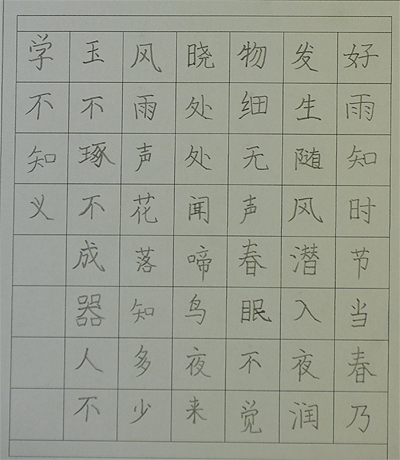 好雨知时节当春乃
发生随风潜入夜润
物细无声春眠不觉
晓处处闻啼鸟夜来
风雨声花落知多少
玉不琢不成器人不
学不知义